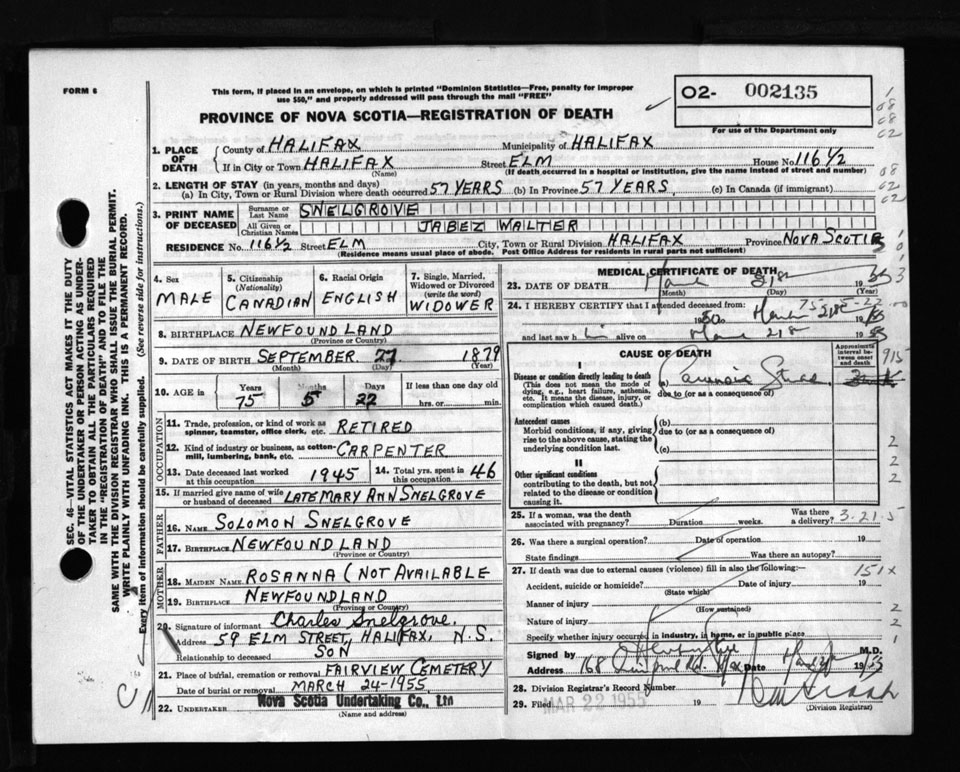 FORM 6
This form, if placed in an envelope, on which is printed "Dominion Statistics—Free, penalty for improper
use $50," and properly addressed will pass through the mail "FREE"
PROVINCE OF NOVA SCOTIA—REGISTRATION OF DEATH
O2- 002135
For use of the Department only
1. PLACE OF DEATH
County of HALIFAX Municipality of HALIFAX
If in City or Town HALIFAX Street ELM House No. 116½
(Name) (If death occurred in a hospital or institution, give the name instead of street and number)
2. LENGTH OF STAY (in years, months and days)
(a) In City, Town or Rural Division where death occurred 57 YEARS (b) In Province 57 YEARS (c) In Canada (if immigrant)
3. PRINT NAME OF DECEASED
Surname or Last Name SNELGROVE
All Given or Christian Names JABEZ WALTER
RESIDENCE No. 116½ Street ELM City, Town or Rural Division HALIFAX Province NOVA SCOTIA
(Residence means usual place of abode. Post Office Address for residents in rural parts not sufficient)
4. Sex
MALE
5. Citizenship (Nationality)
CANADIAN
6. Racial Origin
ENGLISH
7. Single, Married, Widowed or Divorced (write the word)
WIDOWER
8. BIRTHPLACE NEWFOUNDLAND
(Province or Country)
9. DATE OF BIRTH SEPTEMBER 27 1879
(Month) (Day) (Year)
10. AGE in Years Months Days If less than one day old
75 5 22 hrs. or min.
OCCUPATION
11. Trade, profession, or kind of work as spinner, teamster, office clerk, etc. RETIRED
12. Kind of industry or business, as cotton-mill, lumbering, bank, etc. CARPENTER
13. Date deceased last worked at this occupation 1945 14. Total yrs. spent in this occupation 46
15. If married give name of wife or husband of deceased LATE MARY ANN SNELGROVE
FATHER
16. NAME SOLOMON SNELGROVE
17. BIRTHPLACE NEWFOUNDLAND
(Province or Country)
MOTHER
18. MAIDEN NAME ROSANNA (NOT AVAILABLE
19. BIRTHPLACE NEWFOUNDLAND
(Province or Country)
20. Signature of informant Charles Snelgrove.
Address 59 ELM STREET, HALIFAX, N.S.
Relationship to deceased SON
21. Place of burial, cremation or removal FAIRVIEW CEMETERY
Date of burial or removal MARCH 24-1955
22. UNDERTAKER Nova Scotia Undertaking Co., Ltd
(Name and address)
MEDICAL CERTIFICATE OF DEATH
23. DATE OF DEATH
(Month) (Day) (Year)
24. I HEREBY CERTIFY that I attended deceased from:
and last saw h alive on
CAUSE OF DEATH
Approximate interval between onset and death
I
Disease or condition directly leading to death
(This does not mean the mode of dying, e.g., heart failure, asthenia, etc. It means the disease, injury, or complication which caused death.)
(a)
due to (or as a consequence of)
Antecedent causes
Morbid conditions, if any, giving rise to the above cause, stating the underlying condition last.
(b)
due to (or as a consequence of)
(c)
II
Other significant conditions
contributing to the death, but not related to the disease or condition causing it.
25. If a woman, was the death associated with pregnancy? Duration weeks. Was there a delivery? 3-21-5
26. Was there a surgical operation? Date of operation 19
State findings Was there an autopsy?
27. If death was due to external causes (violence) fill in also the following:— 151x
Accident, suicide or homicide? Date of injury 19
(State which)
Manner of injury
(How sustained)
Nature of injury
Specify whether injury occurred in industry, in home, or in public place
Signed by M.D.
Address 168 Date
28. Division Registrar's Record Number
29. Filed MAR 22 1955 19
(Division Registrar)
SEC. 46—VITAL STATISTICS ACT MAKES IT THE DUTY
OF THE UNDERTAKER OR PERSON ACTING AS UNDER-
TAKER TO OBTAIN ALL THE PARTICULARS REQUIRED
IN THE "REGISTRATION OF DEATH" AND TO FILE THE
SAME WITH THE DIVISION REGISTRAR WHO SHALL ISSUE THE BURIAL PERMIT.
WRITE PLAINLY WITH UNFADING INK. THIS IS A PERMANENT RECORD.
Every item of information should be carefully supplied. (See reverse side for instructions.)